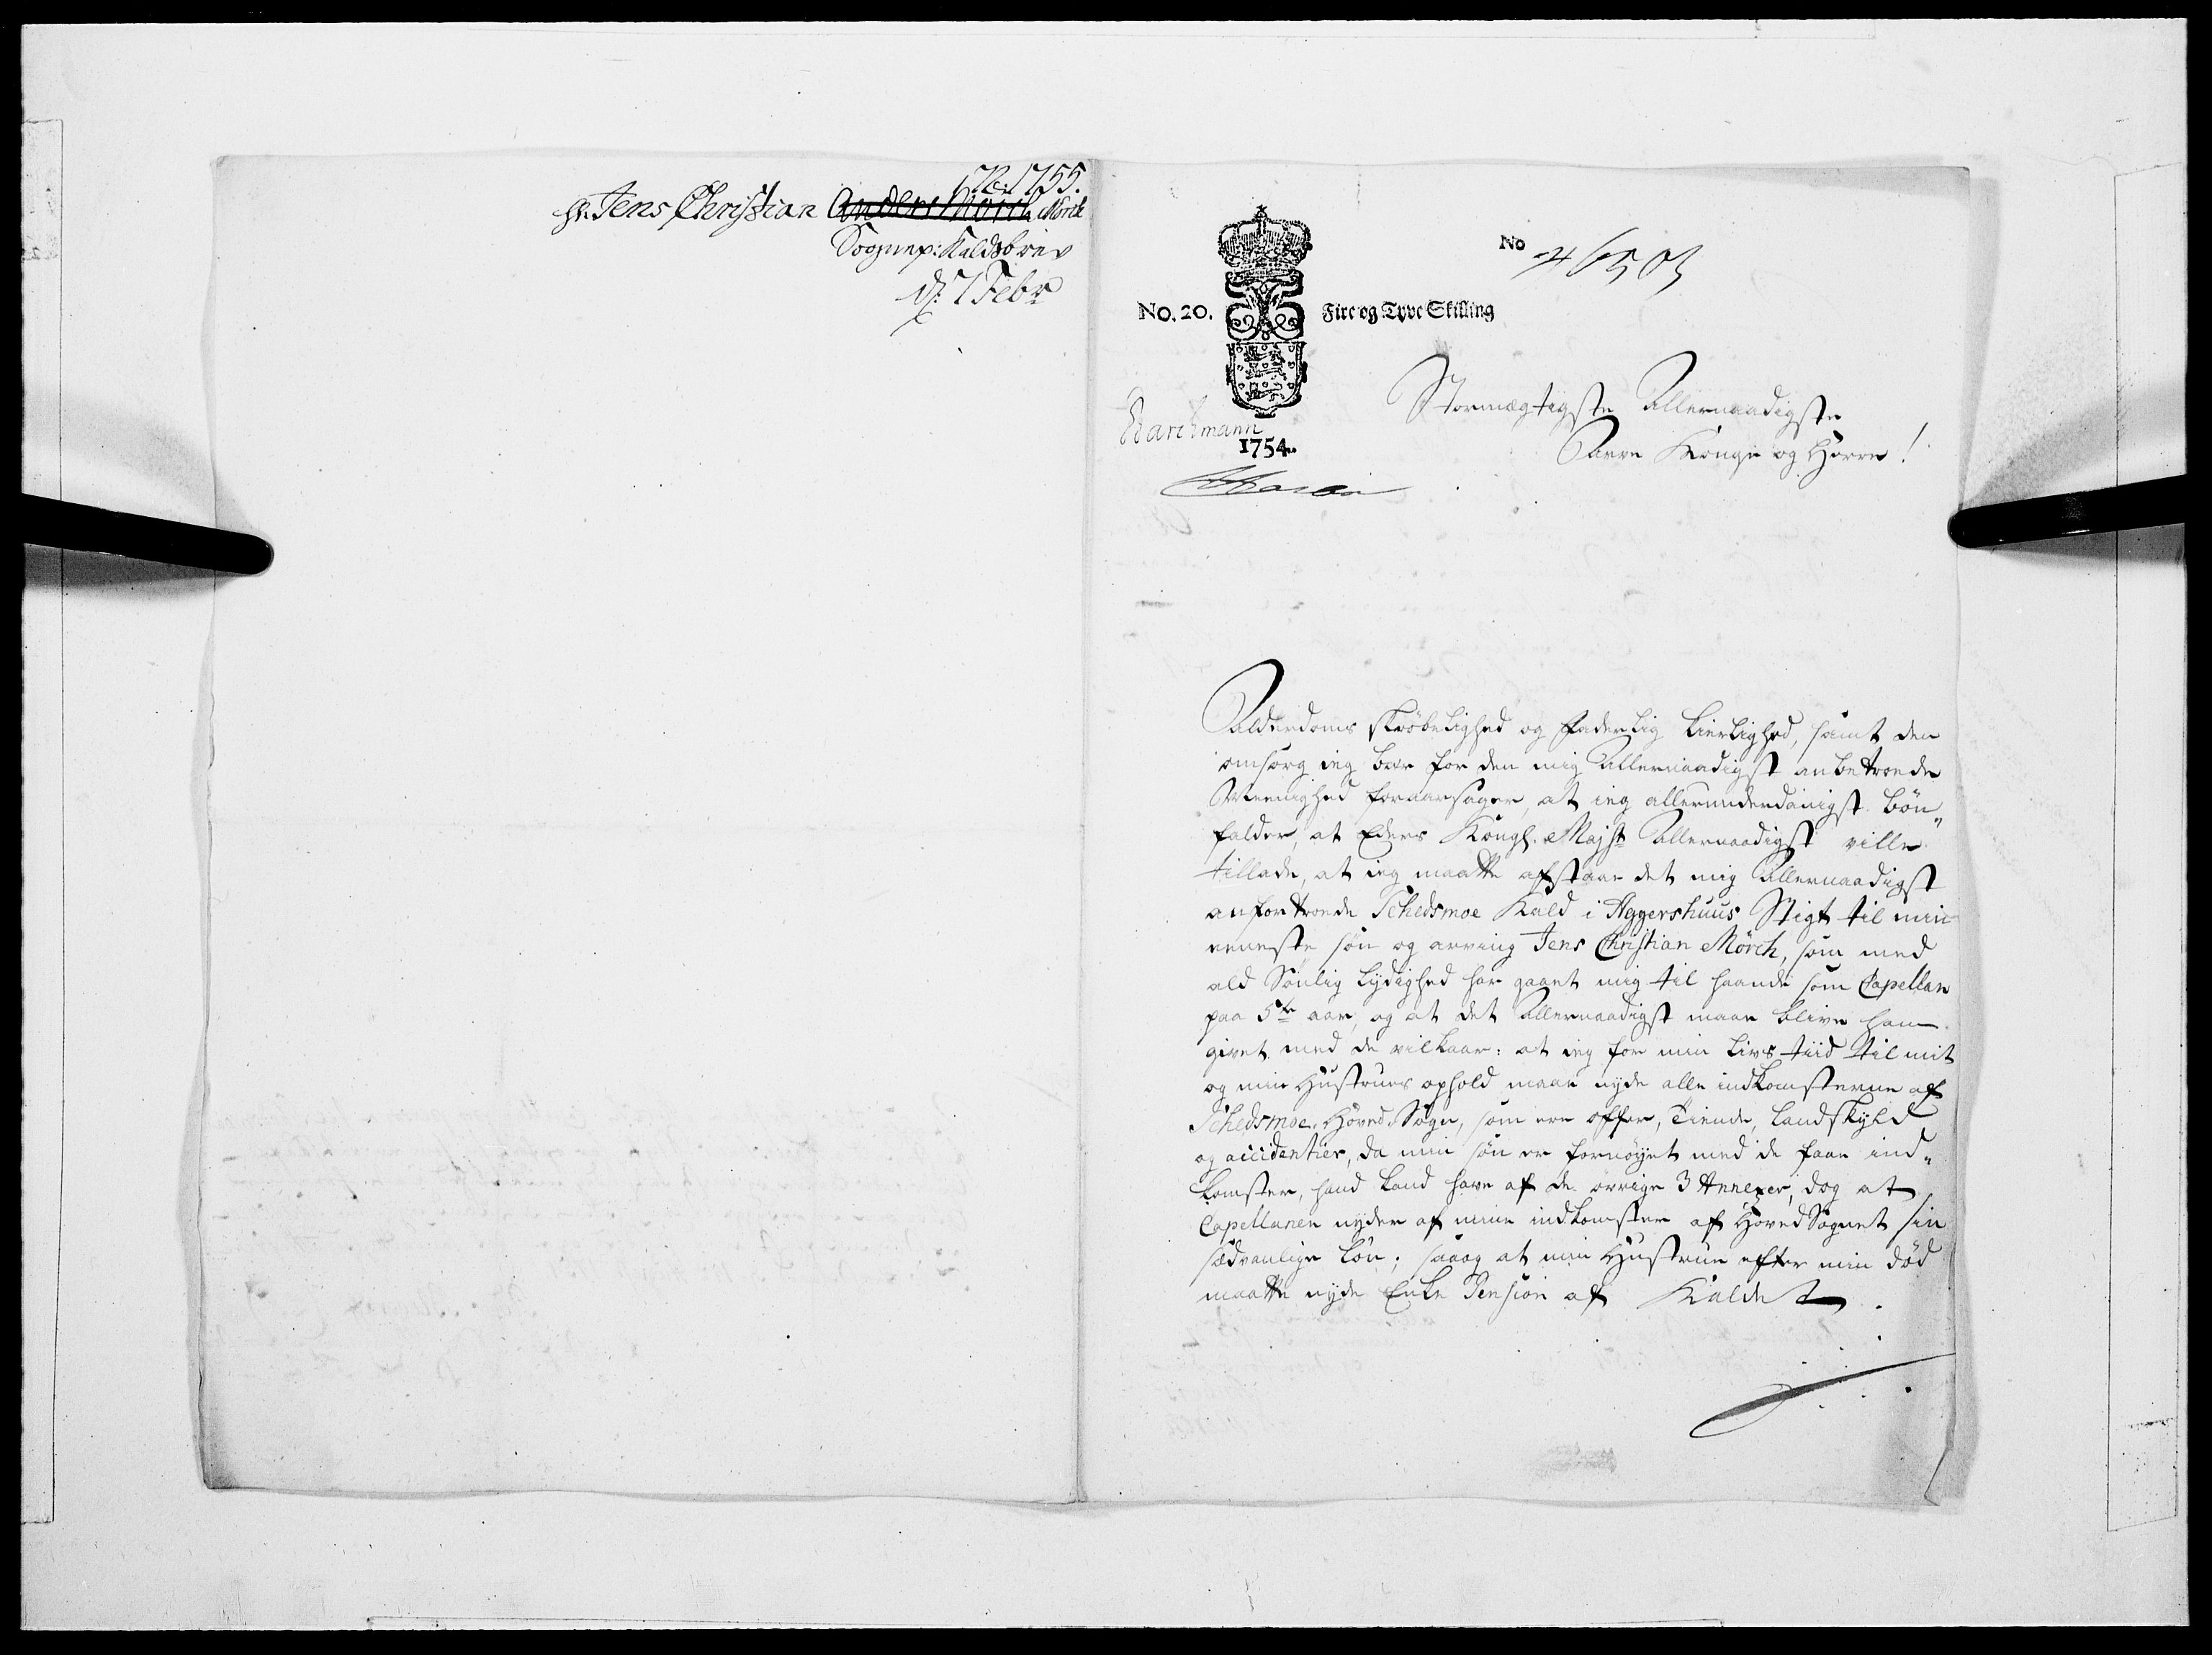 1755.
Hr. Jens Christian Anders Mörch Mörch
Sognep: Kaldsbrev
d: 7 Febr
No
No. 20. Fire og Tyve Skilling
Barchmann
1754.
Stormægtigste Allernaadigste
Arve Konge og Herre!
Alderdoms skröbelighed og faderlig kierlighed, samt den
omsorg ieg bær for den mig Allernaadigst anbetroede
Meenighed foraarsager, at ieg allerunderdanigst bön„
falder, at Eders Kongl. Majst Allernaadigst ville
tillade, at ieg maatte afstaae det mig Allernaadigst
anfortroede Schedsmoe Kald i Aggershuus Stigt til min
eeneste sön og arving Jens Christian Mörch, som med
ald Sönlig lydighed har gaaet mig til haande som Capellan
paa 5te aar, og at det Allernaadigst maae blive ham
givet med de vilkaar: at ieg for min livs tiid til mit
og min Hustrues ophold maae nyde alle indkomsterne af
Schedsmoe Hoved-Sogn, som ere offer, Tiende, landskyld
og accidentier, da min sön er fornöyet med de faae ind„
komster, hand kand have af de övrige 3 Annexer, dog at
Capellanen nyder af mine indkomster af Hoved Sognet sin
sædvanlige lön; saaog at min Hustrue efter min död
maatte nyde Enke Pension af Kaldet.